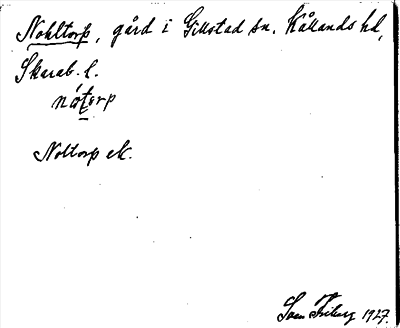 Nohltorp, gård i Gillstad sn. Kållands hd,
Skarab. l.
nótorp
Noltorp ek.
Sven 1927.